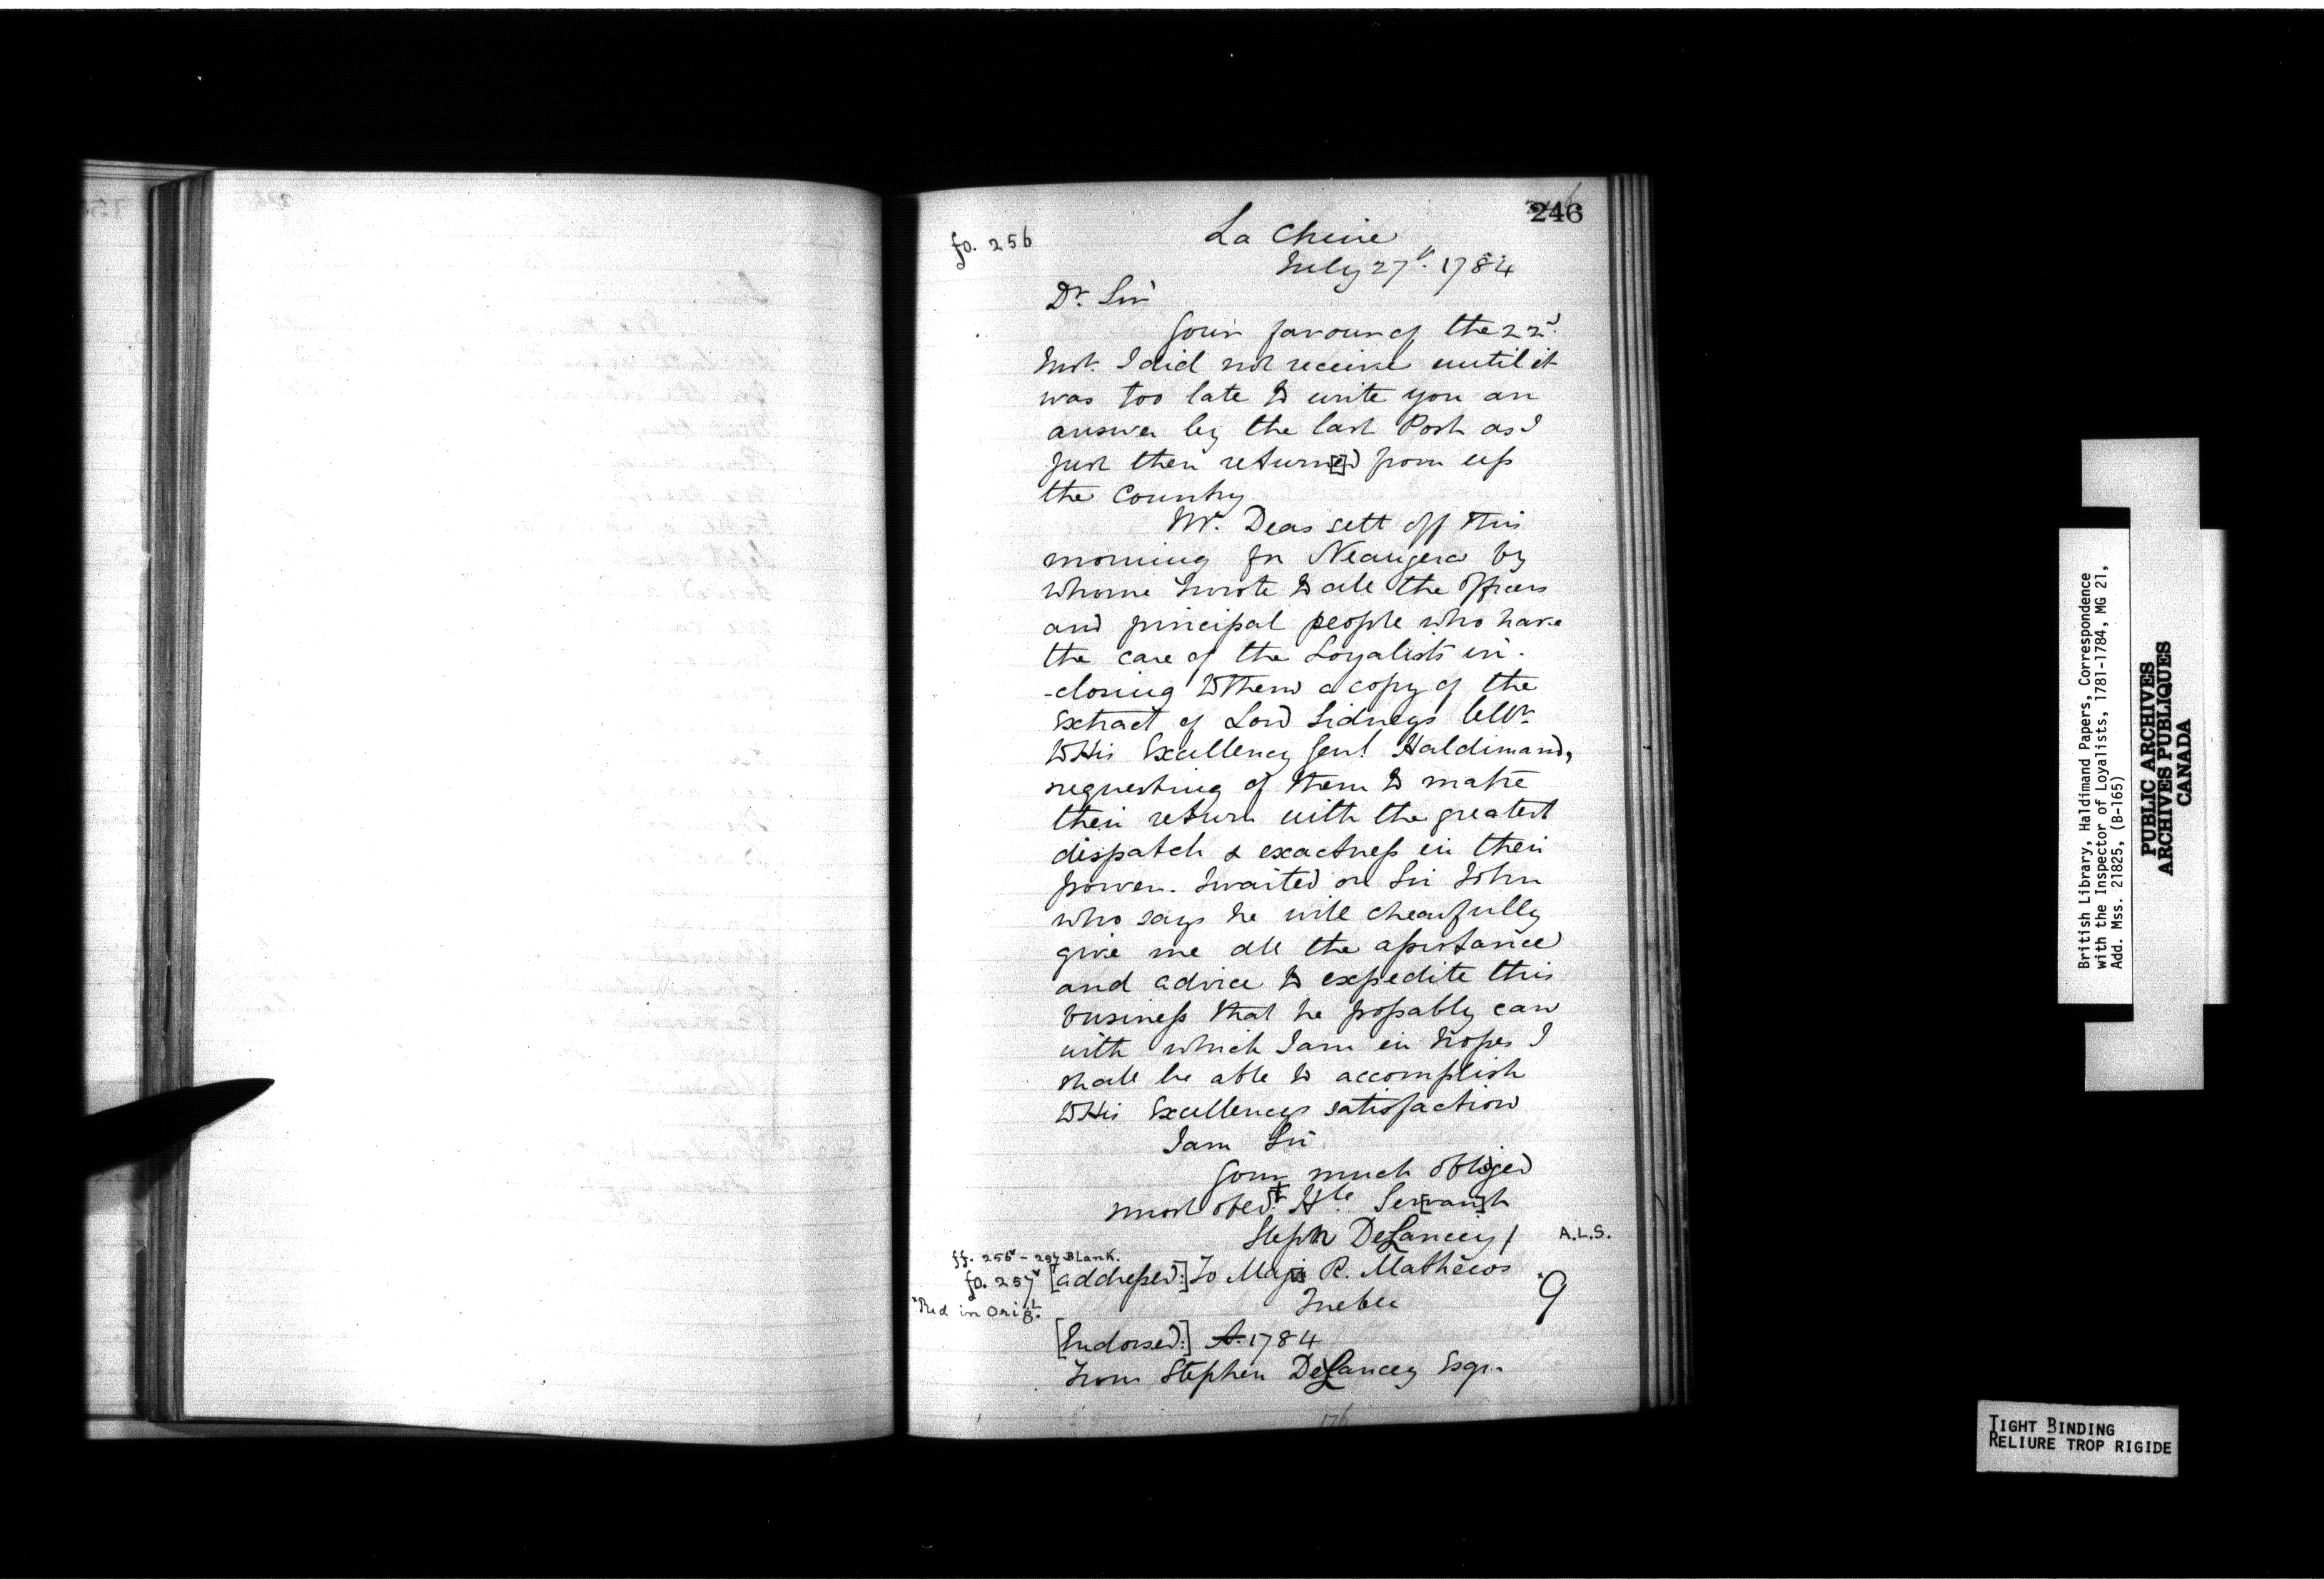 246
fo. 256
La Chine
July 27th. 1784
Dr. Sir
Your favour of the 22d.
Inst. I did not receive until it
was too late to write you an
answer by the last Post as I
just then return[e]d from up
the Country
Mr. Deas sett off this
morning for Neaugera by
whome I wrote to all the Officers
and principal people who have
the care of the Loyalists in-
-closing to them a copy of the
Extract of Lord Sidneys lettr.
to His Excellency Genl. Haldimand,
requesting of them to make
their return with the greatest
dispatch & exactness in their
power. I waited on Sir John
who says he will chearfully
give me all the assistance
and advice to expedite this
business that he possably can
with which I am in hopes I
shall be able to accomplish
to His Excellencys satisfaction
I am Sir
Your much obliged
most obedt. Hle. Ser[van]t
Stepn DeLancey/
A.L.S.
ff. 256v - 257 Blank.
fo. 257v [addressed:] To Majr R. Mathews
Quebec
*9
*Red in Origl.
[Endorsed:] A. 1784
From Stephen DeLancey Esqr.
176
British Library, Haldimand Papers, Correspondence
with the Inspector of Loyalists, 1781-1784, MG 21,
Add. Mss. 21825, (B-165)
PUBLIC ARCHIVES
ARCHIVES PUBLIQUES
CANADA
TIGHT BINDING
RELIURE TROP RIGIDE